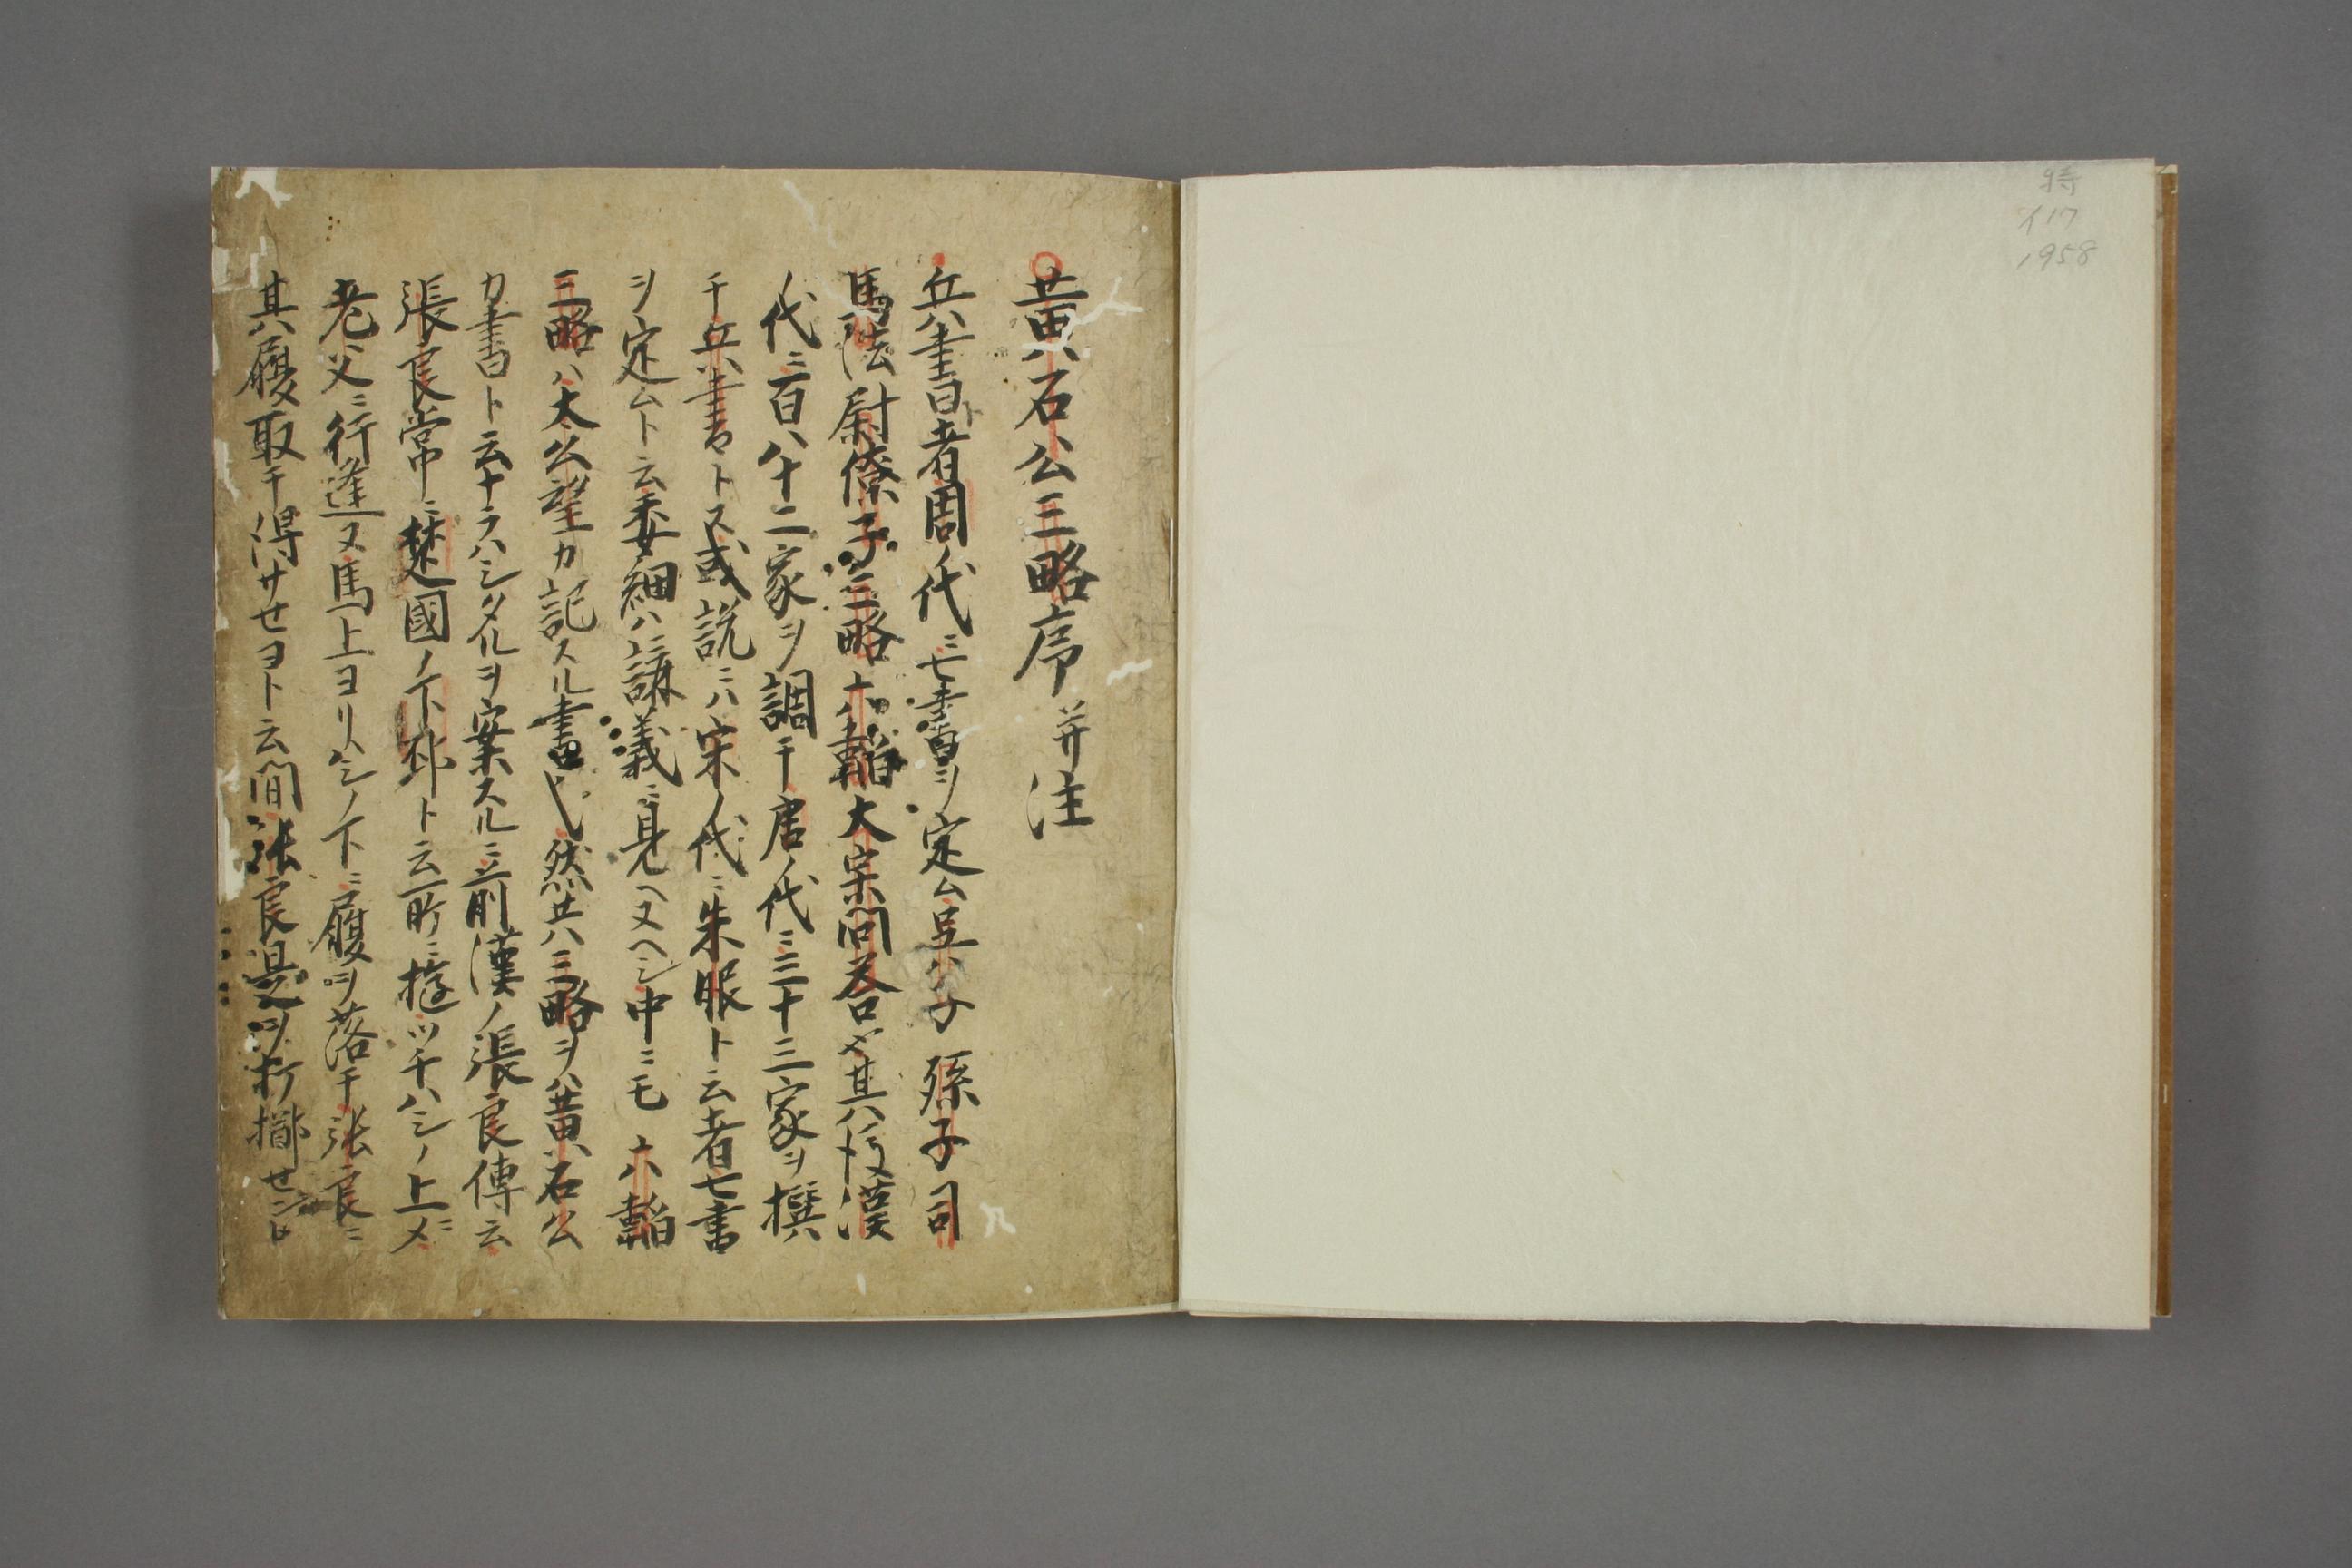 特
イ17
1958
黄石公三略序 并注
兵書ト者周ノ代ニ七書ヲ定ム呉子 孫子 司
馬法 尉繚子 三略 六韜 大宗問答〆其後漢
ノ代ニ百八十二家ヲ調テ唐ノ代ニ三十三家ヲ撰
テ兵書トス或説ニハ宋ノ代ニ朱服ト云者七書
ヲ定ムト云委細ハ講義ニ見ヘヌヘシ中ニモ 六韜
三略ハ太公望カ記スル書也然共三略ヲハ黄石公
カ書ト云ナラハシタルヲ案スルニ前漢ノ張良傳云
張良常ニ楚國ノ下邳ト云所ニ遊ツテハシノ上ニ〆
老父ニ行逢ヌ馬上ヨリハシノ下ニ履ヲ落テ張良ニ
其履取テ得サセヨト云間張良是ヲ打擲セント